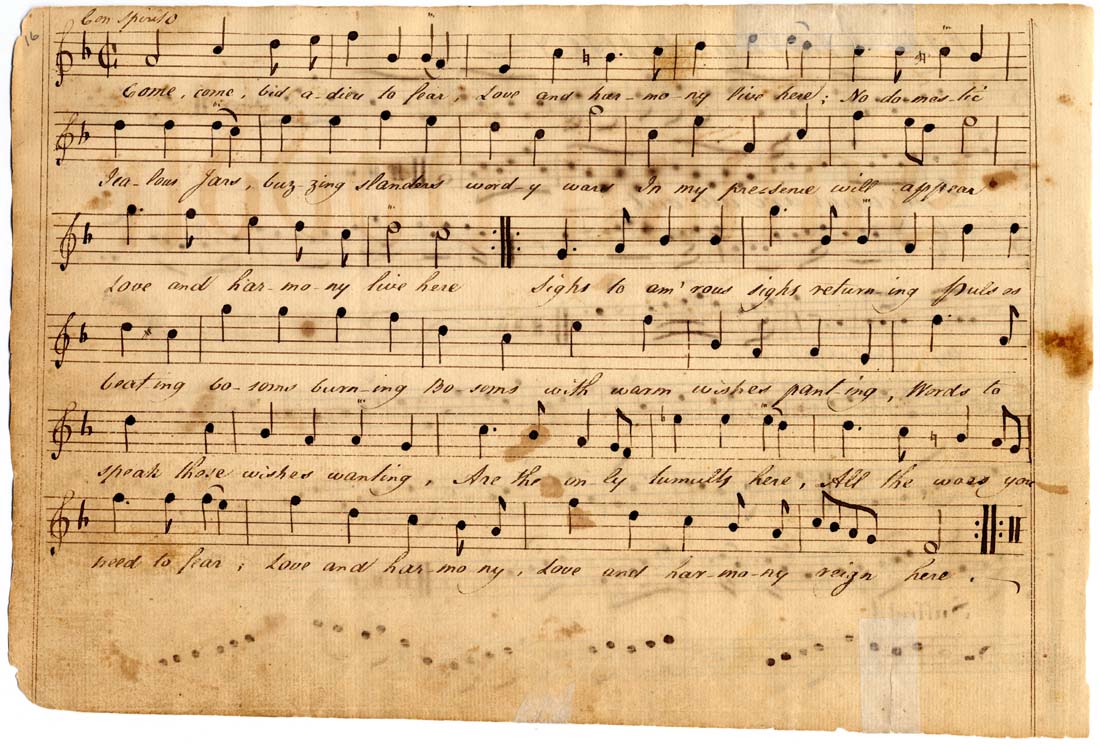 16
Con Spirito
Come, come, bid a-dieu to fear, Love and har-mo-ny live here; No do-mes-tic
Jea-lous Jars, buz-zing slanders word-y wars In my presence will appear
Love and har-mo-ny live here Sighs to am'rous sighs return-ing Pulses
beating bo-soms burn-ing Bo-soms with warm wishes pant-ing, Words to
speak those wishes wanting, Are the on-ly tumults here, All the woes you
need to fear; Love and har-mo-ny, Love and har-mo-ny reign here.